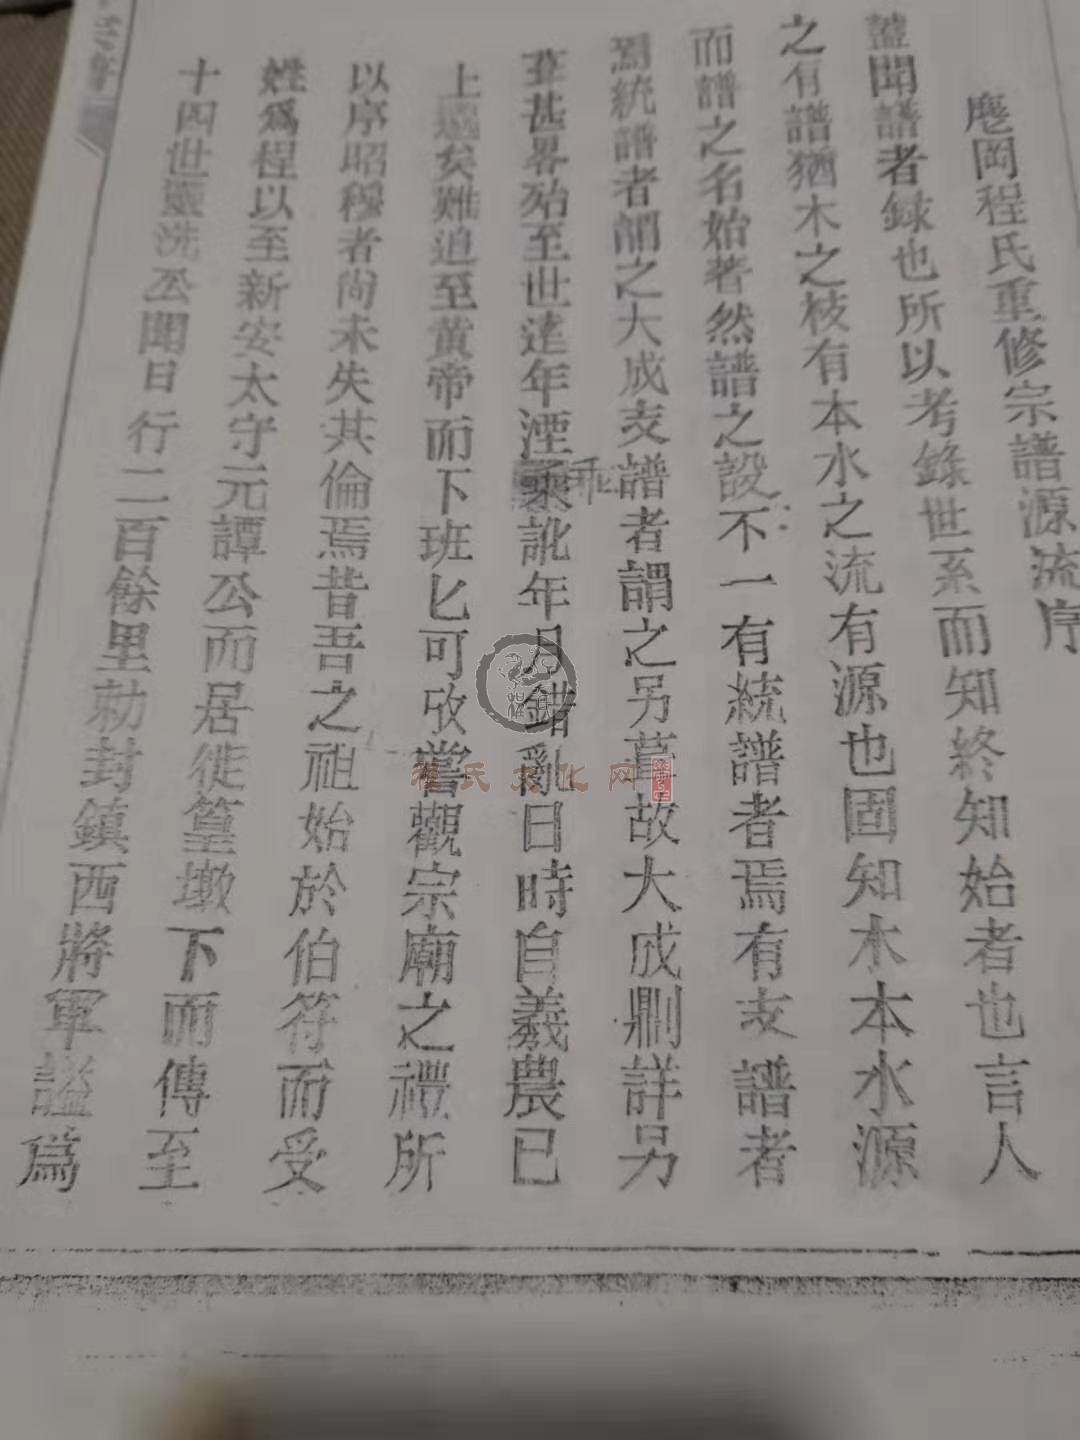 麂岡程氏重修宗譜源流序
蓋聞譜者録也所以考錄世系而知終知始者也言人
之有譜猶木之枝有本水之流有源也固知木本水源
而譜之名始著然譜之設不一有統譜者焉有支譜者
焉統譜者謂之大成支譜者謂之另葺故大成剛詳另
葺甚畧殆至世逹年湮乖訛年月錯亂日時自羲農已
上邈矣難追至黄帝而下班匕可攷嘗觀宗廟之禮所
以序昭穆者尚未失其倫焉昔吾之祖始於伯符而受
姓爲程以至新安太守元譚公而居徙篁墩下而傳至
十四世靈洗公聞日行二百餘里勅封鎮西將軍謚爲
程氏文化网